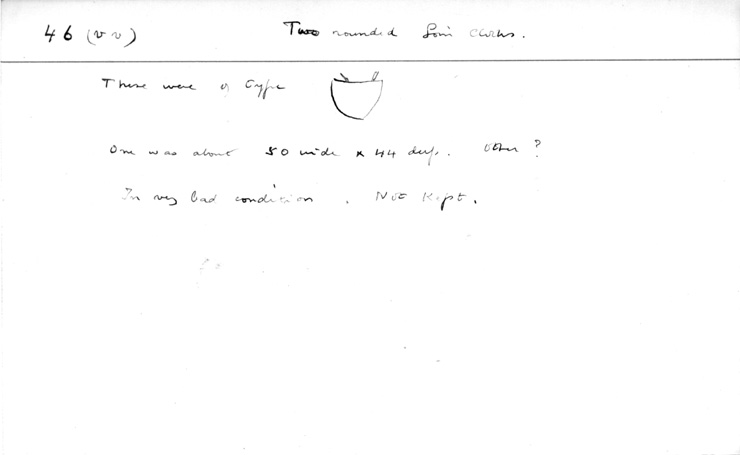 46 (vv) Two rounded Loin Cloths.
These were of type
One was about 50 wide x 44 deep. Other ?
In very bad condition. Not Kept.